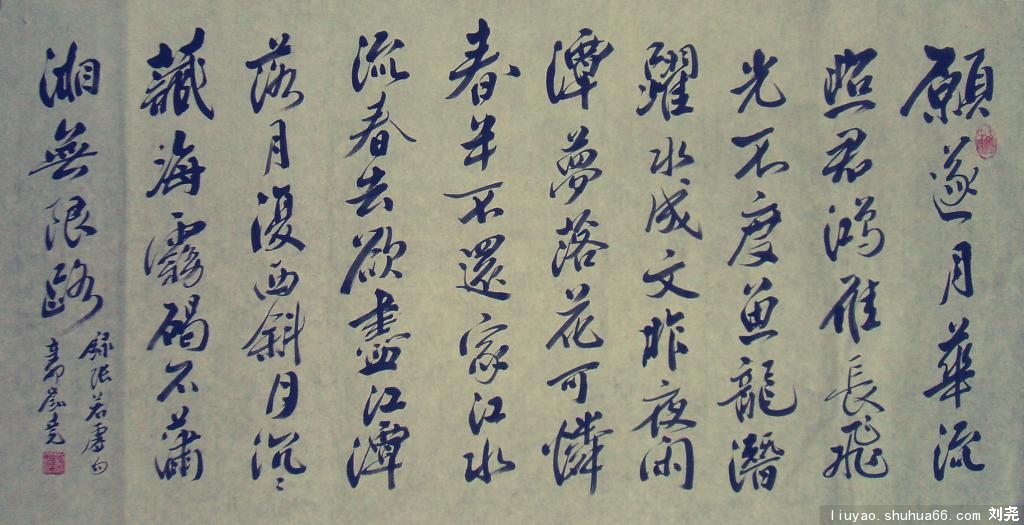 願逐月華流
照君鴻雁長飛
光不度魚龍潛
躍水成文昨夜閑
潭夢落花可憐
春半不還家江水
流春去欲盡江潭
落月復西斜月沉〻
藏海霧碣石瀟
湘無限路
錄張若虛句
辛卯劉堯
liuyao.shuhua66.com 刘尧